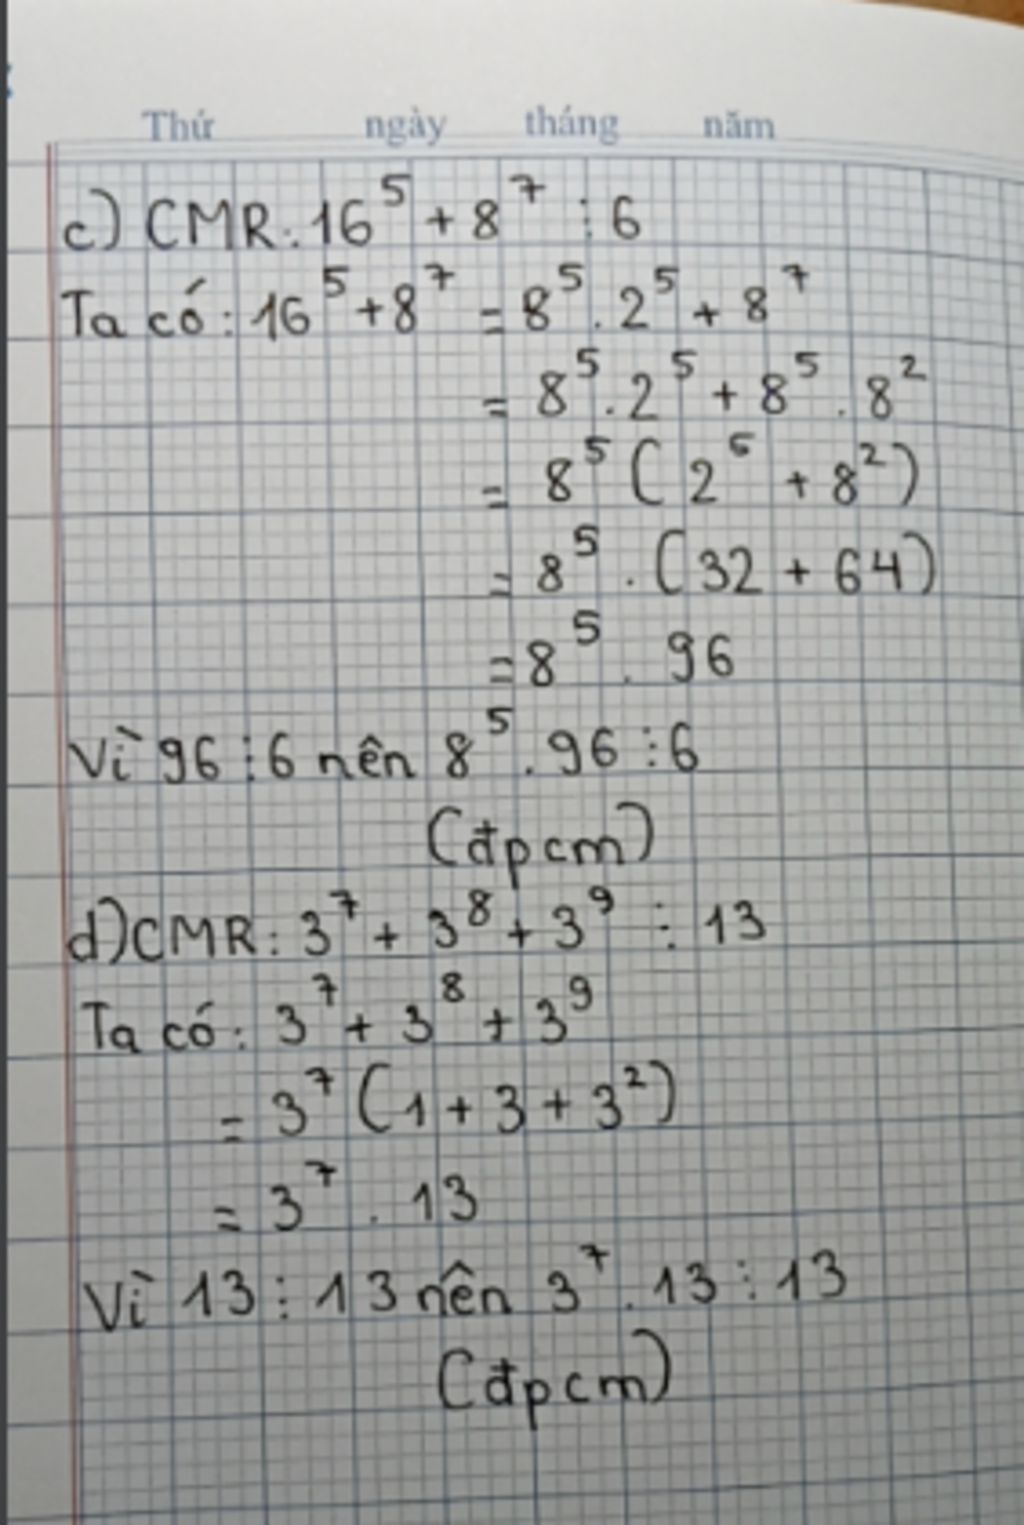 Thứ ngày tháng năm
c) CMR: 16⁵ + 8⁷ ⋮ 6
Ta có: 16⁵ + 8⁷ = 8⁵ . 2⁵ + 8⁷
= 8⁵ . 2⁵ + 8⁵ . 8²
= 8⁵ ( 2⁵ + 8² )
= 8⁵ . ( 32 + 64 )
= 8⁵ . 96
Vì 96 ⋮ 6 nên 8⁵ . 96 ⋮ 6
(đpcm)
d) CMR: 3⁷ + 3⁸ + 3⁹ ⋮ 13
Ta có: 3⁷ + 3⁸ + 3⁹
= 3⁷ ( 1 + 3 + 3² )
= 3⁷ . 13
Vì 13 ⋮ 13 nên 3⁷ . 13 ⋮ 13
(đpcm)